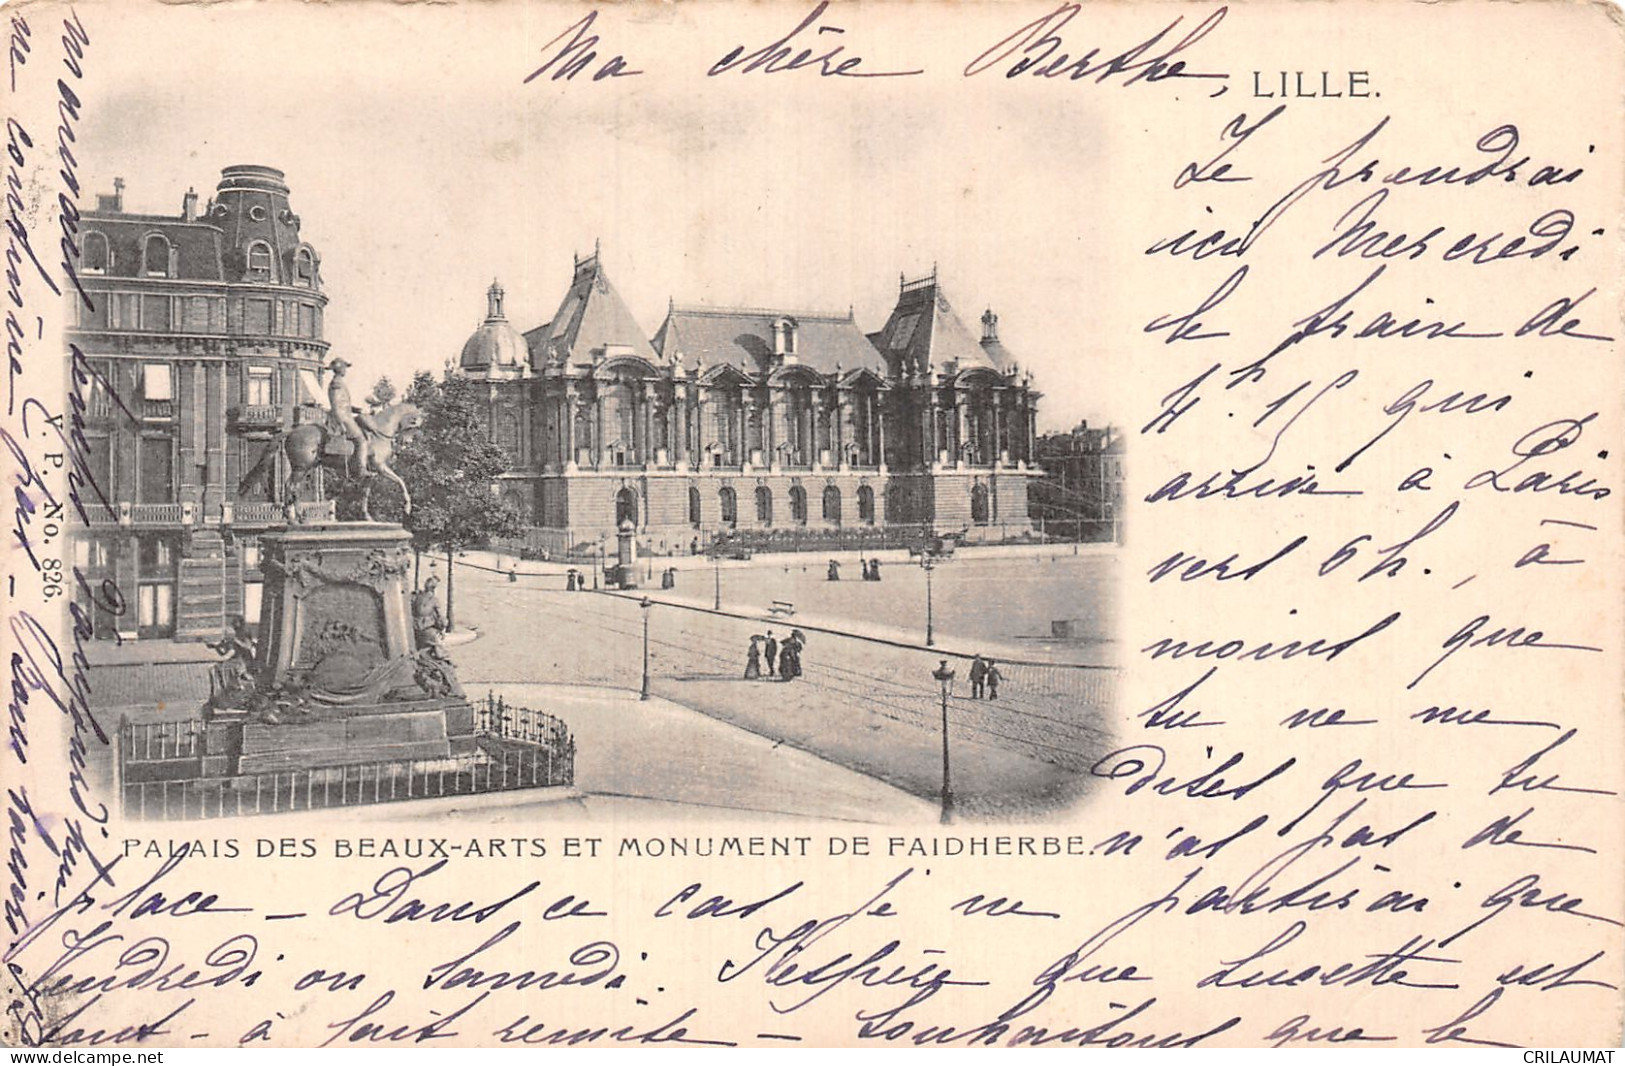 Ma chère Berthe,
LILLE.
Je prendrai
ici Mercredi
le train de
4h. 15 qui
arrive à Paris
vers 6h., à
moins que
tu ne me
dises que tu
n'as pas de
place – Dans ce cas je ne partirai que
Vendredi ou Samedi. J'espère que Lucette est
tout-à fait remise – Souhaitons que le
mauvais temps d'aujourd'hui
ne continue pas – Bons baisers
V. P. No. 826.
PALAIS DES BEAUX-ARTS ET MONUMENT DE FAIDHERBE.
CRILAUMAT